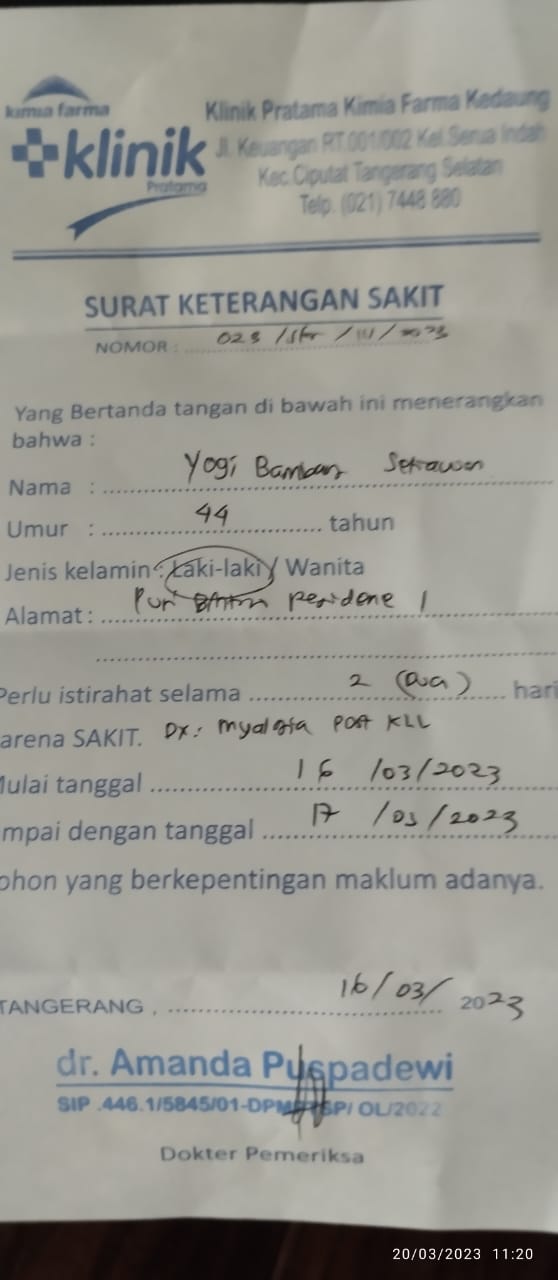 kimia farma
klinik
Pratama
Klinik Pratama Kimia Farma Kedaung
Jl. Keuangan RT.001/002 Kel.Serua Indah
Kec.Ciputat Tangerang Selatan
Telp. (021) 7448 880
SURAT KETERANGAN SAKIT
NOMOR : 023 / / III / 2023
Yang Bertanda tangan di bawah ini menerangkan
bahwa :
Nama : Yogi Bambang Setiawan
Umur : 44 tahun
Jenis kelamin : Laki-laki / Wanita
Alamat : Puri 1
Perlu istirahat selama 2 (Dua) hari
arena SAKIT. Dx: Myalgia post KLL
Mulai tanggal 16 /03/2023
mpai dengan tanggal 17 /03/2023
ohon yang berkepentingan maklum adanya.
TANGERANG , 16/03/ 2023
dr. Amanda Puspadewi
SIP .446.1/5845/01-DPMPTSP/ OL/2022
Dokter Pemeriksa
20/03/2023 11:20